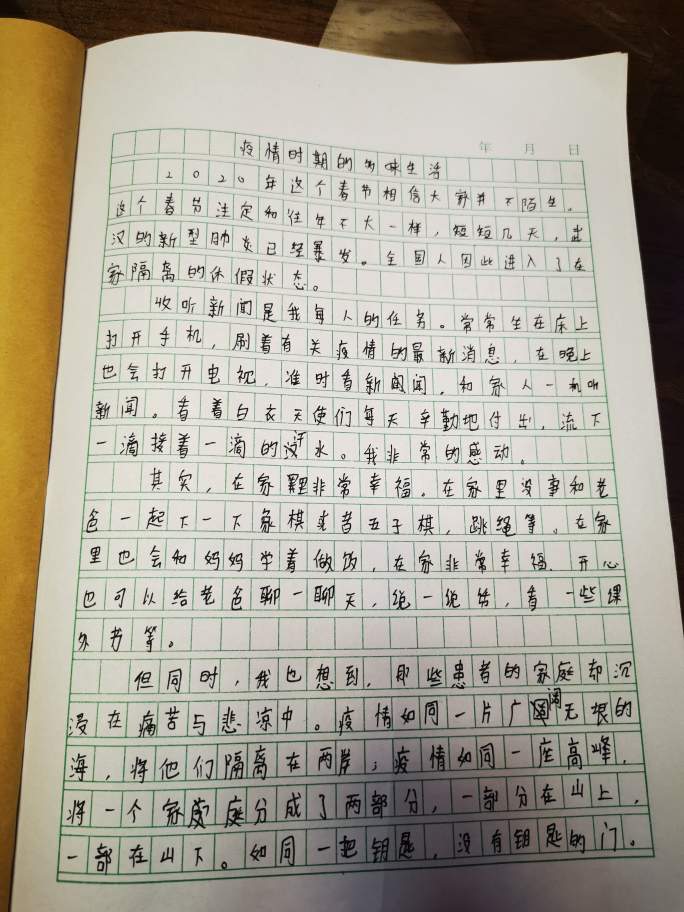 年 月 日
疫情时期的多味生活
2020年这个春节相信大家并不陌生。
这个春节注定和往年不大一样，短短几天，武
汉的新型肺炎已经暴发。全国人因此进入了在
家隔离的休假状态。
收听新闻是我每人的任务。常常坐在床上
打开手机，刷着有关疫情的最新消息，在晚上
也会打开电视，准时看新闻，和家人一起听
新闻。看着白衣天使们每天辛勤地付出，流下
一滴接着一滴的汗水。我非常的感动。
其实，在家里非常幸福。在家里没事和老
爸一起下一下象棋或者五子棋，跳绳等。在家
里也会和妈妈学着做饭，在家非常幸福．开心
也可以给老爸聊一聊天，绕一绕话，看一些课
外书等。
但同时，我也想到，那些患者的家庭却沉
浸在痛苦与悲凉中。疫情如同一片广阔无垠的
海，将他们隔离在两岸；疫情如同一座高峰，
将一个家庭分成了两部分，一部分在山上，
一部在山下。如同一把钥匙，没有钥匙的门。